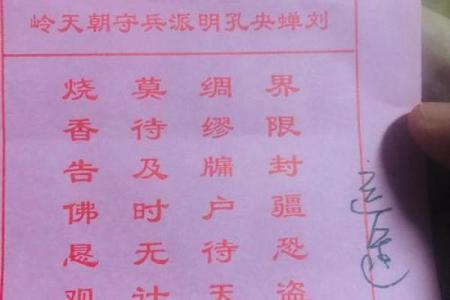 刘蝉央孔明派兵守朝天岭
界限封疆恐盗
绸缪牖户待天
莫待及时无计
烧香告佛恳观